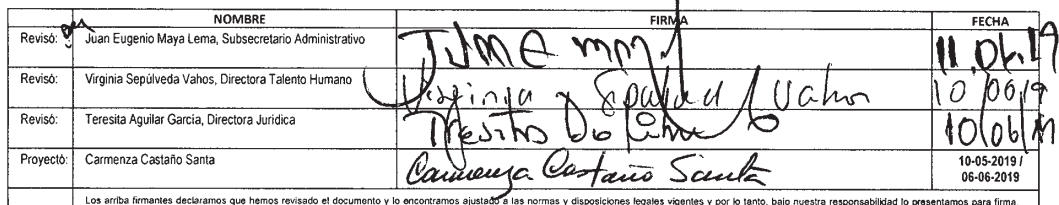 NOMBRE FIRMA FECHA
Revisó: Juan Eugenio Maya Lema, Subsecretario Administrativo 11.06.19
Revisó: Virginia Sepúlveda Vahos, Directora Talento Humano Virginia Sepulveda Vahos 10/06/19
Revisó: Teresita Aguilar García, Directora Jurídica 10/06/19
Proyectó: Carmenza Castaño Santa Carmenza Castaño Santa 10-05-2019 /
06-06-2019
Los arriba firmantes declaramos que hemos revisado el documento y lo encontramos ajustado a las normas y disposiciones legales vigentes y por lo tanto, bajo nuestra responsabilidad lo presentamos para firma.